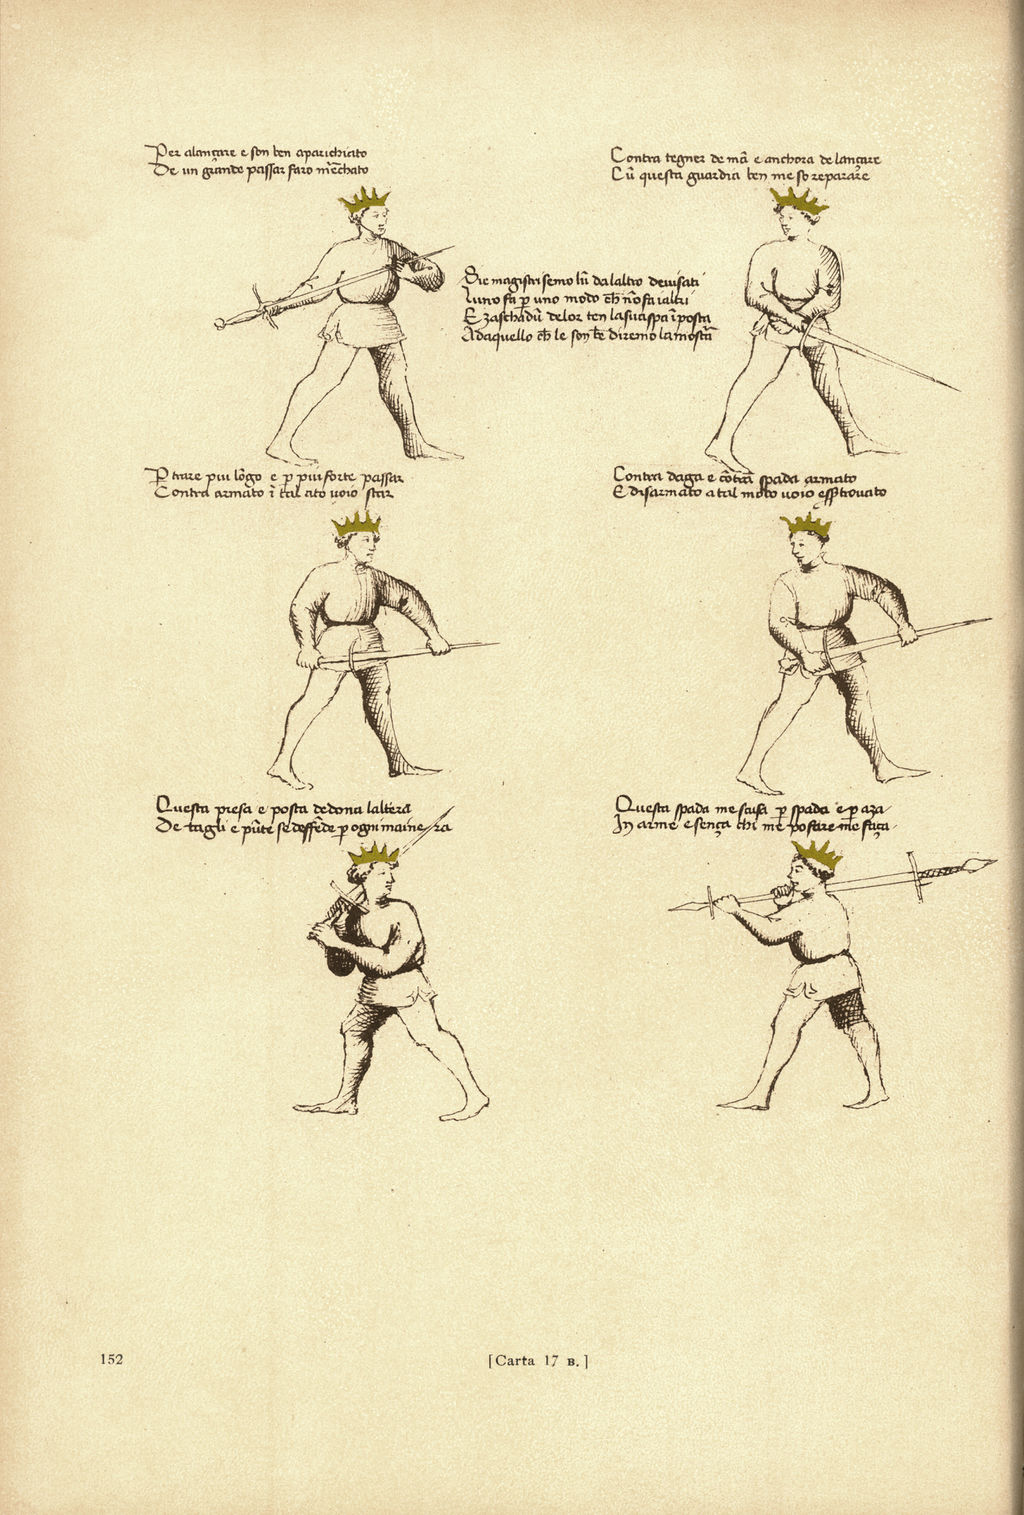 Per alançare e son ben aparichiato
De un grande passar faro m̄echato
Contra tegner de mā e anchora de lançare
Cū questa guardia ben me so reparare
Sie magistri semo lū da laltro devisati
Luno fa p uno modo ch̄ nō fa ialtri
E zaschadū de lor ten la sua spa ī posta
A da quello ch̄ le son bē diremo la mostā
P trare piu lōgo e p piu forte passar
Contra armato ī tal ato voio star
Contra daga e cōtra spada armato
E disarmato a tal modo voio esser trovato
Questa presa e posta de dona laltera
De tagli e pūte se deffēde p ogni mainera
Questa spada me scusa p spada e p aza
In arme e sença chi me po fare me faça
152
[Carta 17 B.]